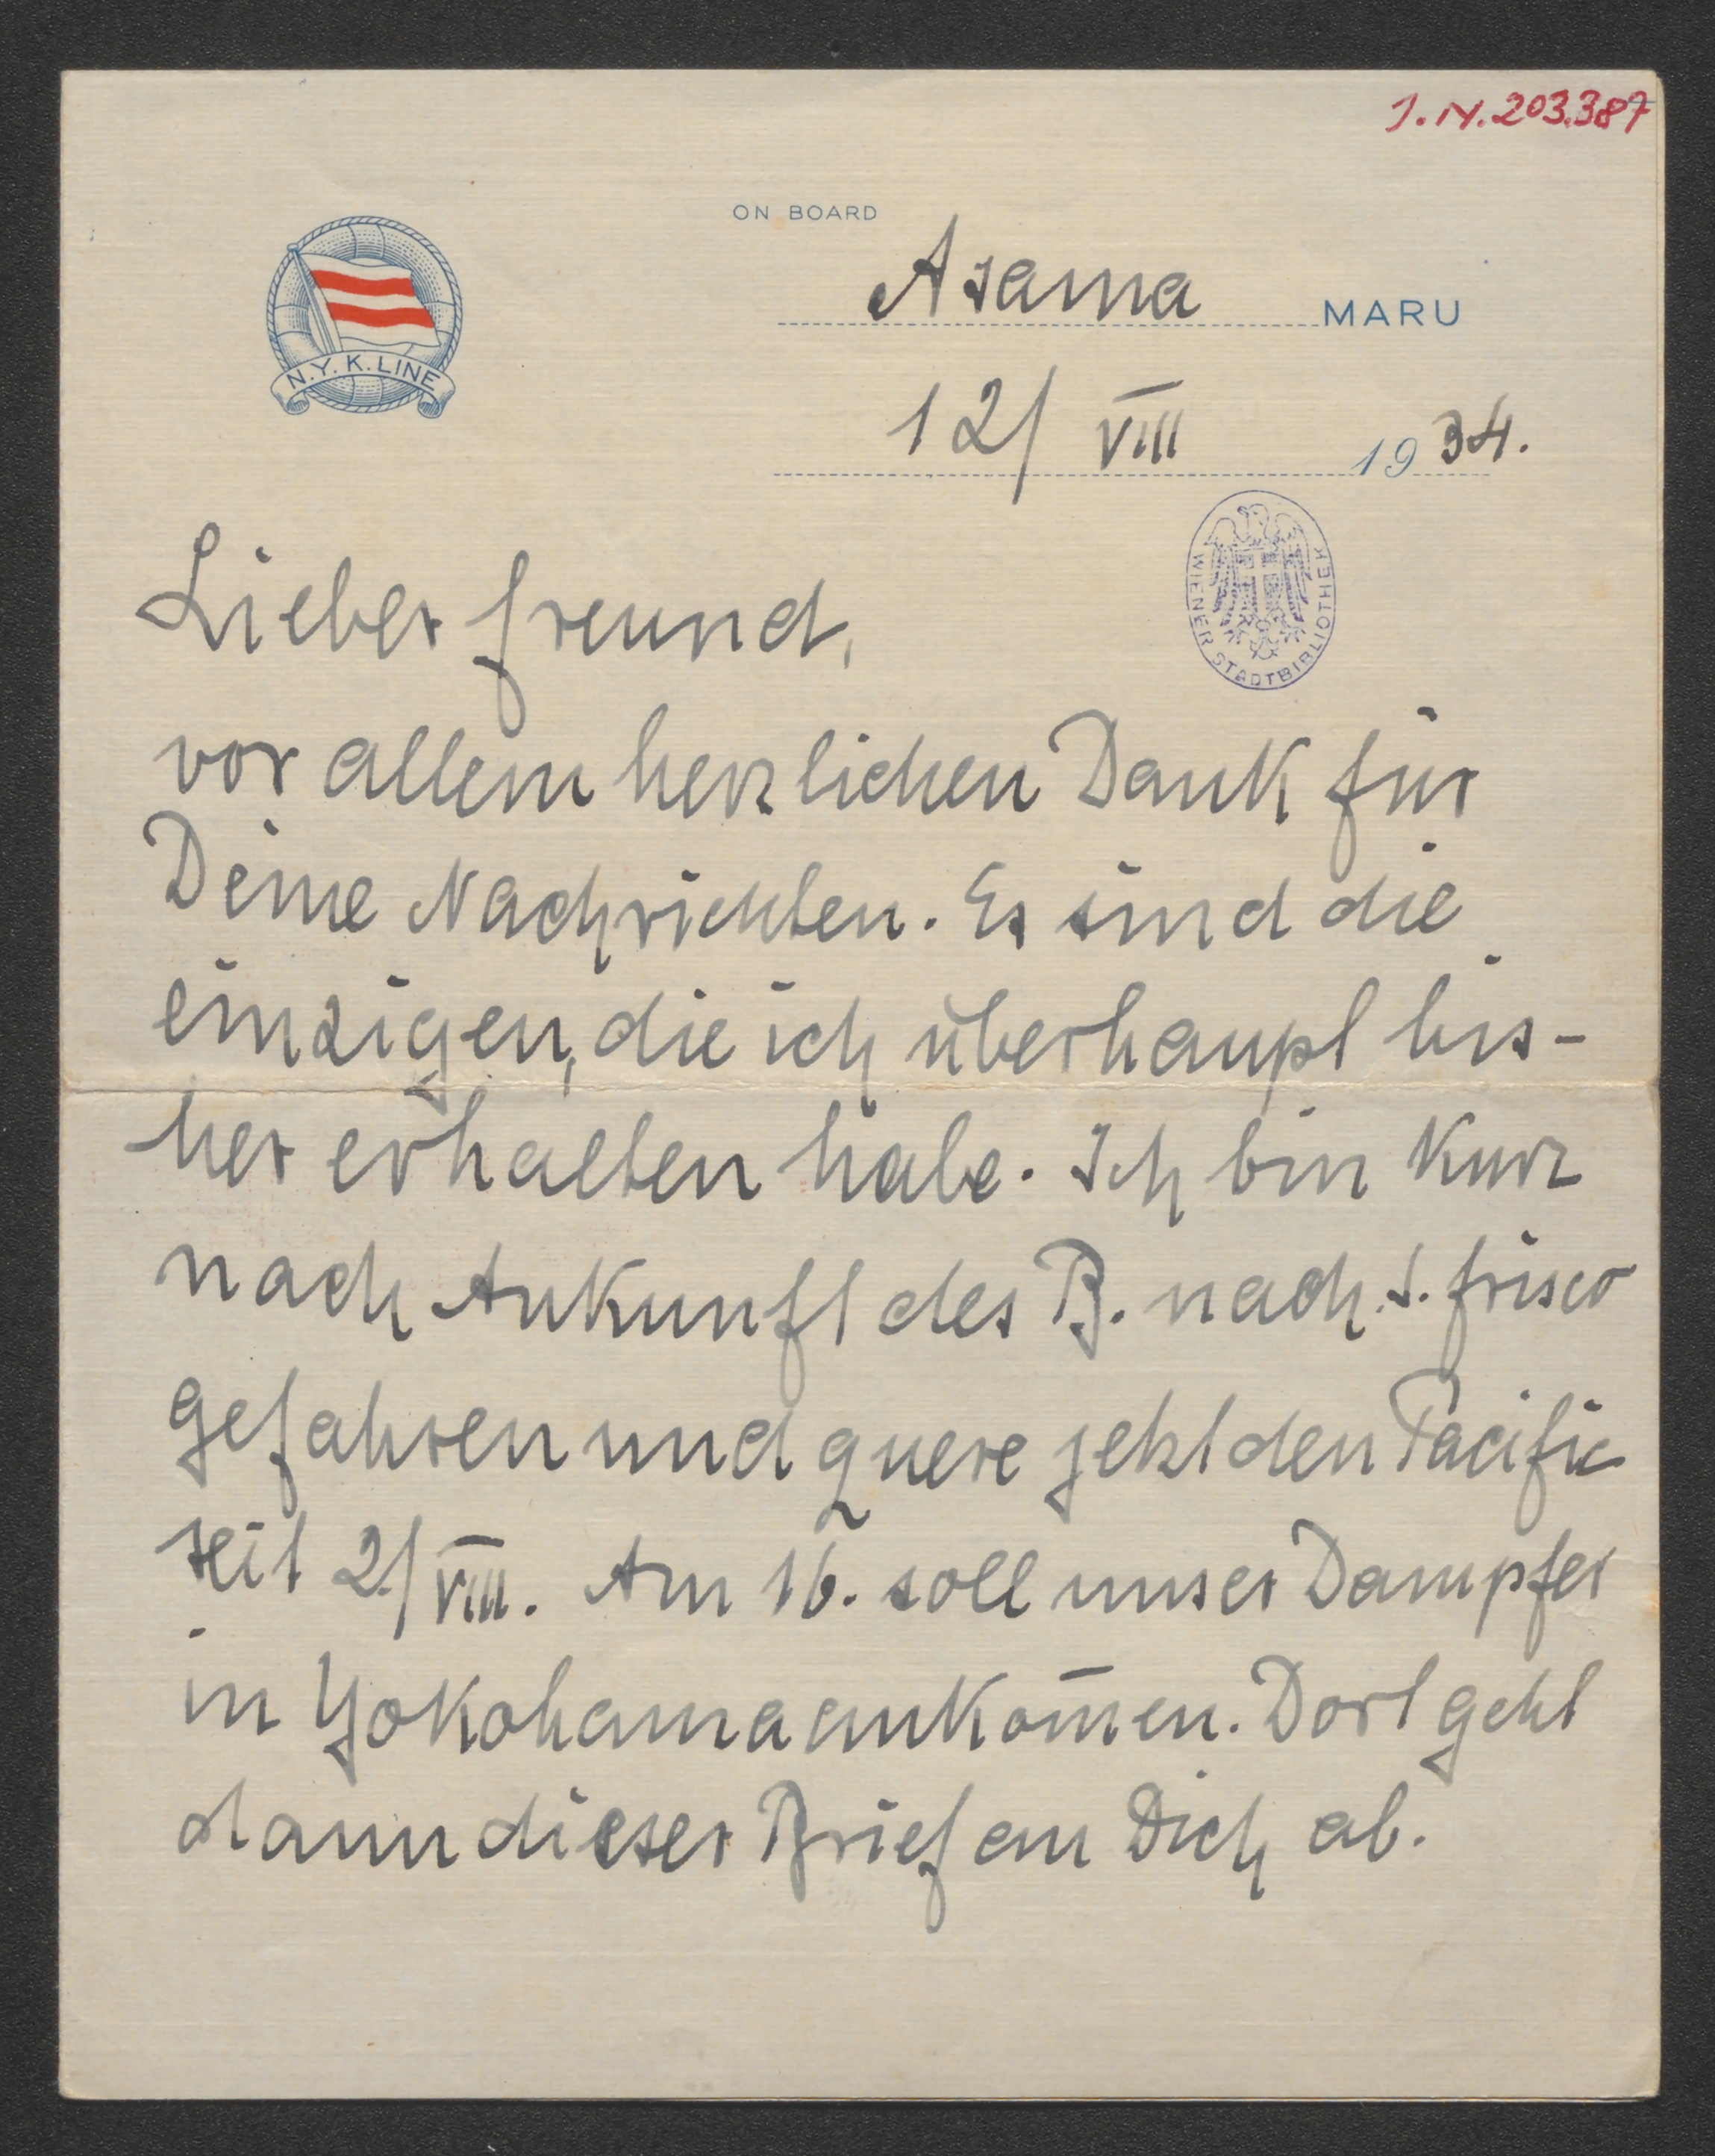 J.N.203.387
ON BOARD
Asama MARU
N.Y.K.LINE
12/VIII 1934.
WIENER STADTBIBLIOTHEK
Lieber Freund,
vor allem herzlichen Dank für
Deine Nachrichten. Es sind die
einzigen, die ich überhaupt bis-
her erhalten habe. Ich bin kurz
nach Ankunft des B. nach S. Frisco
gefahren und quere jetzt den Pacific
seit 2/VIII. Am 16. soll unser Dampfer
in Yokohama ankom̄en. Dort geht
dann dieser Brief an Dich ab.